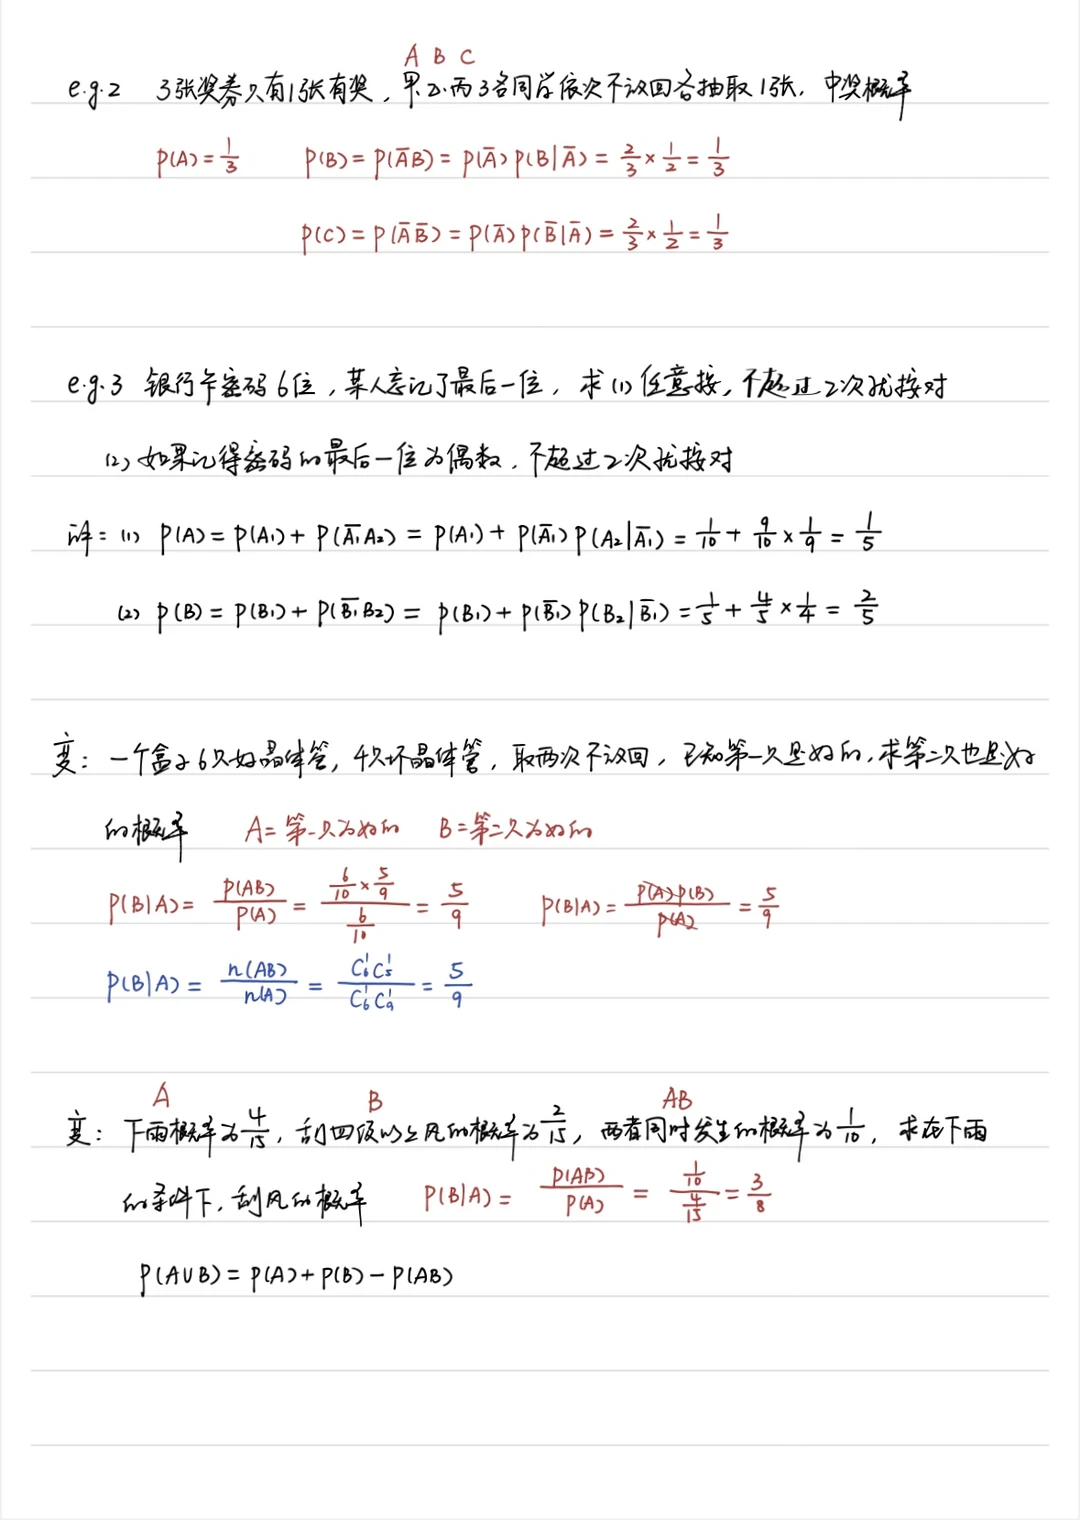 A B C
e.g.2 3张奖券只有1张有奖，甲.乙.丙3名同学依次不放回各抽取1张，中奖概率
P(A)=1/3 P(B)=P(A̅B)=P(A̅)P(B|A̅)=2/3×1/2=1/3
P(C)=P(A̅B̅)=P(A̅)P(B̅|A̅)=2/3×1/2=1/3
e.g.3 银行卡密码6位，某人忘记了最后一位，求(1)任意按，不超过2次就按对
(2)如果记得密码的最后一位为偶数，不超过2次就按对
解：(1) P(A)=P(A₁)+P(A̅₁A₂)=P(A₁)+P(A̅₁)P(A₂|A̅₁)=1/10+9/10×1/9=1/5
(2) P(B)=P(B₁)+P(B̅₁B₂)=P(B₁)+P(B̅₁)P(B₂|B̅₁)=1/5+4/5×1/4=2/5
变：一个盒子6只好晶体管，4只坏晶体管，取两次不放回，已知第一只是好的，求第二只也是好
的概率 A=第一只为好的 B=第二只为好的
P(B|A)=P(AB)/P(A)=(6/10×5/9)/(6/10)=5/9 P(B|A)=P(A)P(B)/P(A)=5/9
P(B|A)=n(AB)/n(A)=C₆¹C₅¹/C₆¹C₉¹=5/9
A B AB
变：下雨概率为4/15，刮四级以上风的概率为2/15，两者同时发生的概率为1/10，求在下雨
的条件下，刮风的概率 P(B|A)=P(AB)/P(A)=(1/10)/(4/15)=3/8
P(A∪B)=P(A)+P(B)-P(AB)